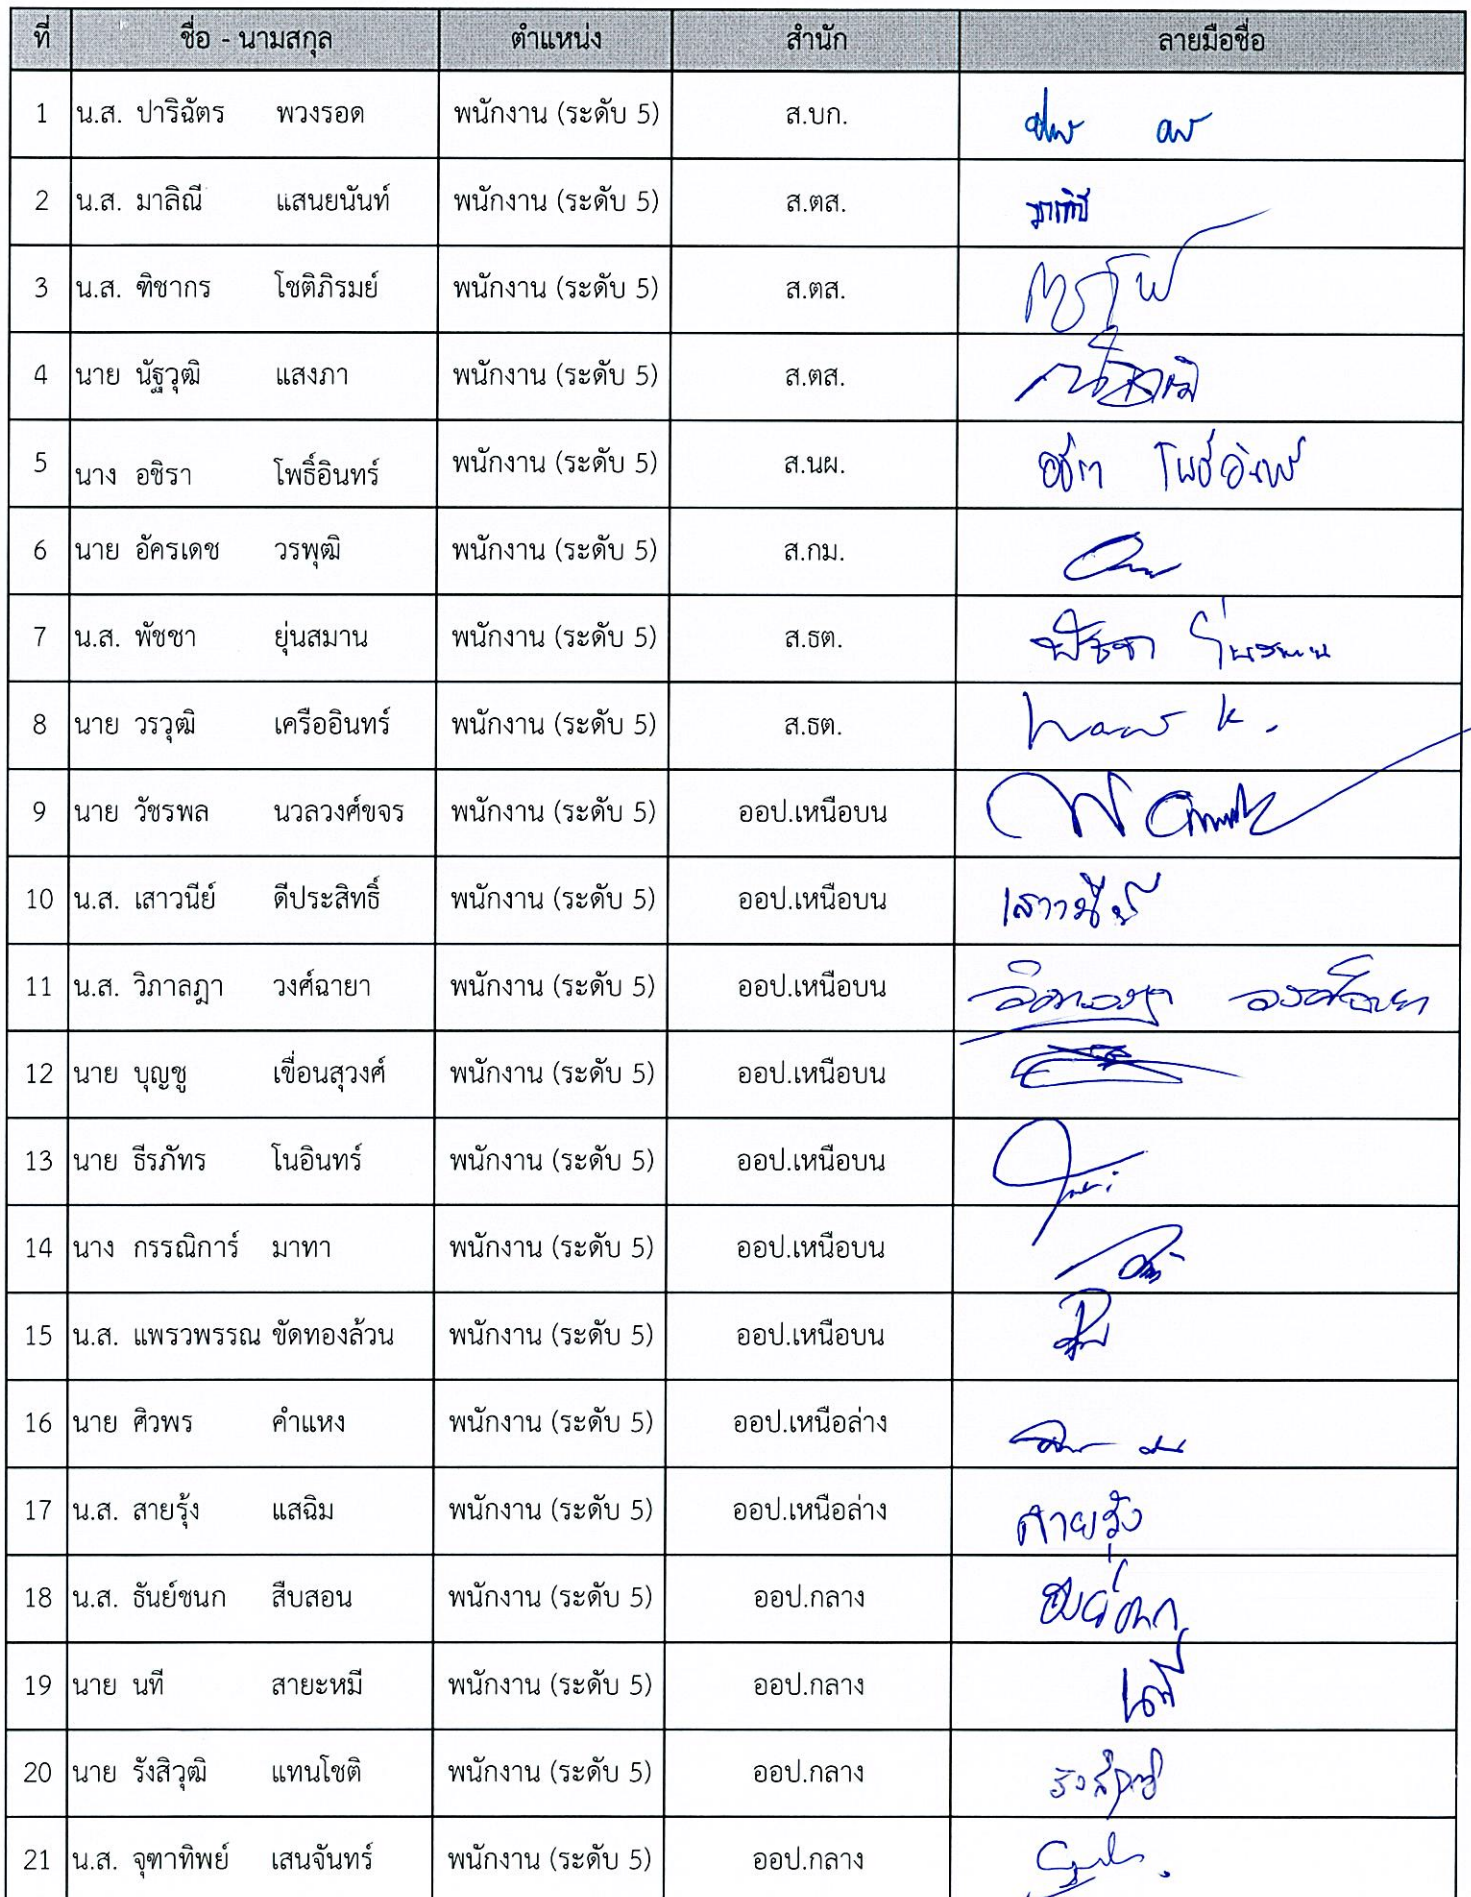 ที่ ชื่อ - นามสกุล ตำแหน่ง สำนัก ลายมือชื่อ
1 น.ส. ปาริฉัตร พวงรอด พนักงาน (ระดับ 5) ส.บก.
2 น.ส. มาลิณี แสนยนันท์ พนักงาน (ระดับ 5) ส.ตส. มาลิณี
3 น.ส. ฑิชากร โชติภิรมย์ พนักงาน (ระดับ 5) ส.ตส.
4 นาย นัฐวุฒิ แสงภา พนักงาน (ระดับ 5) ส.ตส.
5 นาง อชิรา โพธิ์อินทร์ พนักงาน (ระดับ 5) ส.นผ. อชิรา โพธิ์อินทร์
6 นาย อัครเดช วรพุฒิ พนักงาน (ระดับ 5) ส.กม.
7 น.ส. พัชชา ยุ่นสมาน พนักงาน (ระดับ 5) ส.ธต. พัชชา ยุ่นสมาน
8 นาย วรวุฒิ เครืออินทร์ พนักงาน (ระดับ 5) ส.ธต.
9 นาย วัชรพล นวลวงศ์ขจร พนักงาน (ระดับ 5) ออป.เหนือบน
10 น.ส. เสาวนีย์ ดีประสิทธิ์ พนักงาน (ระดับ 5) ออป.เหนือบน เสาวนีย์
11 น.ส. วิภาลฎา วงศ์ฉายา พนักงาน (ระดับ 5) ออป.เหนือบน วิภาลฎา วงศ์ฉายา
12 นาย บุญชู เขื่อนสุวงศ์ พนักงาน (ระดับ 5) ออป.เหนือบน
13 นาย ธีรภัทร โนอินทร์ พนักงาน (ระดับ 5) ออป.เหนือบน
14 นาง กรรณิการ์ มาทา พนักงาน (ระดับ 5) ออป.เหนือบน
15 น.ส. แพรวพรรณ ขัดทองล้วน พนักงาน (ระดับ 5) ออป.เหนือบน
16 นาย ศิวพร คำแหง พนักงาน (ระดับ 5) ออป.เหนือล่าง
17 น.ส. สายรุ้ง แสฉิม พนักงาน (ระดับ 5) ออป.เหนือล่าง สายรุ้ง
18 น.ส. ธันย์ชนก สืบสอน พนักงาน (ระดับ 5) ออป.กลาง ธันย์ชนก
19 นาย นที สายะหมี พนักงาน (ระดับ 5) ออป.กลาง นที
20 นาย รังสิวุฒิ แทนโชติ พนักงาน (ระดับ 5) ออป.กลาง รังสิวุฒิ
21 น.ส. จุฑาทิพย์ เสนจันทร์ พนักงาน (ระดับ 5) ออป.กลาง